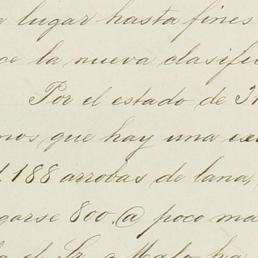 lugar hasta fines
la nueva clasifi
Por el estado de
mos que hay una
188 arrobas de lana,
garse 800 @ poco ma
el Sr. Malo ha